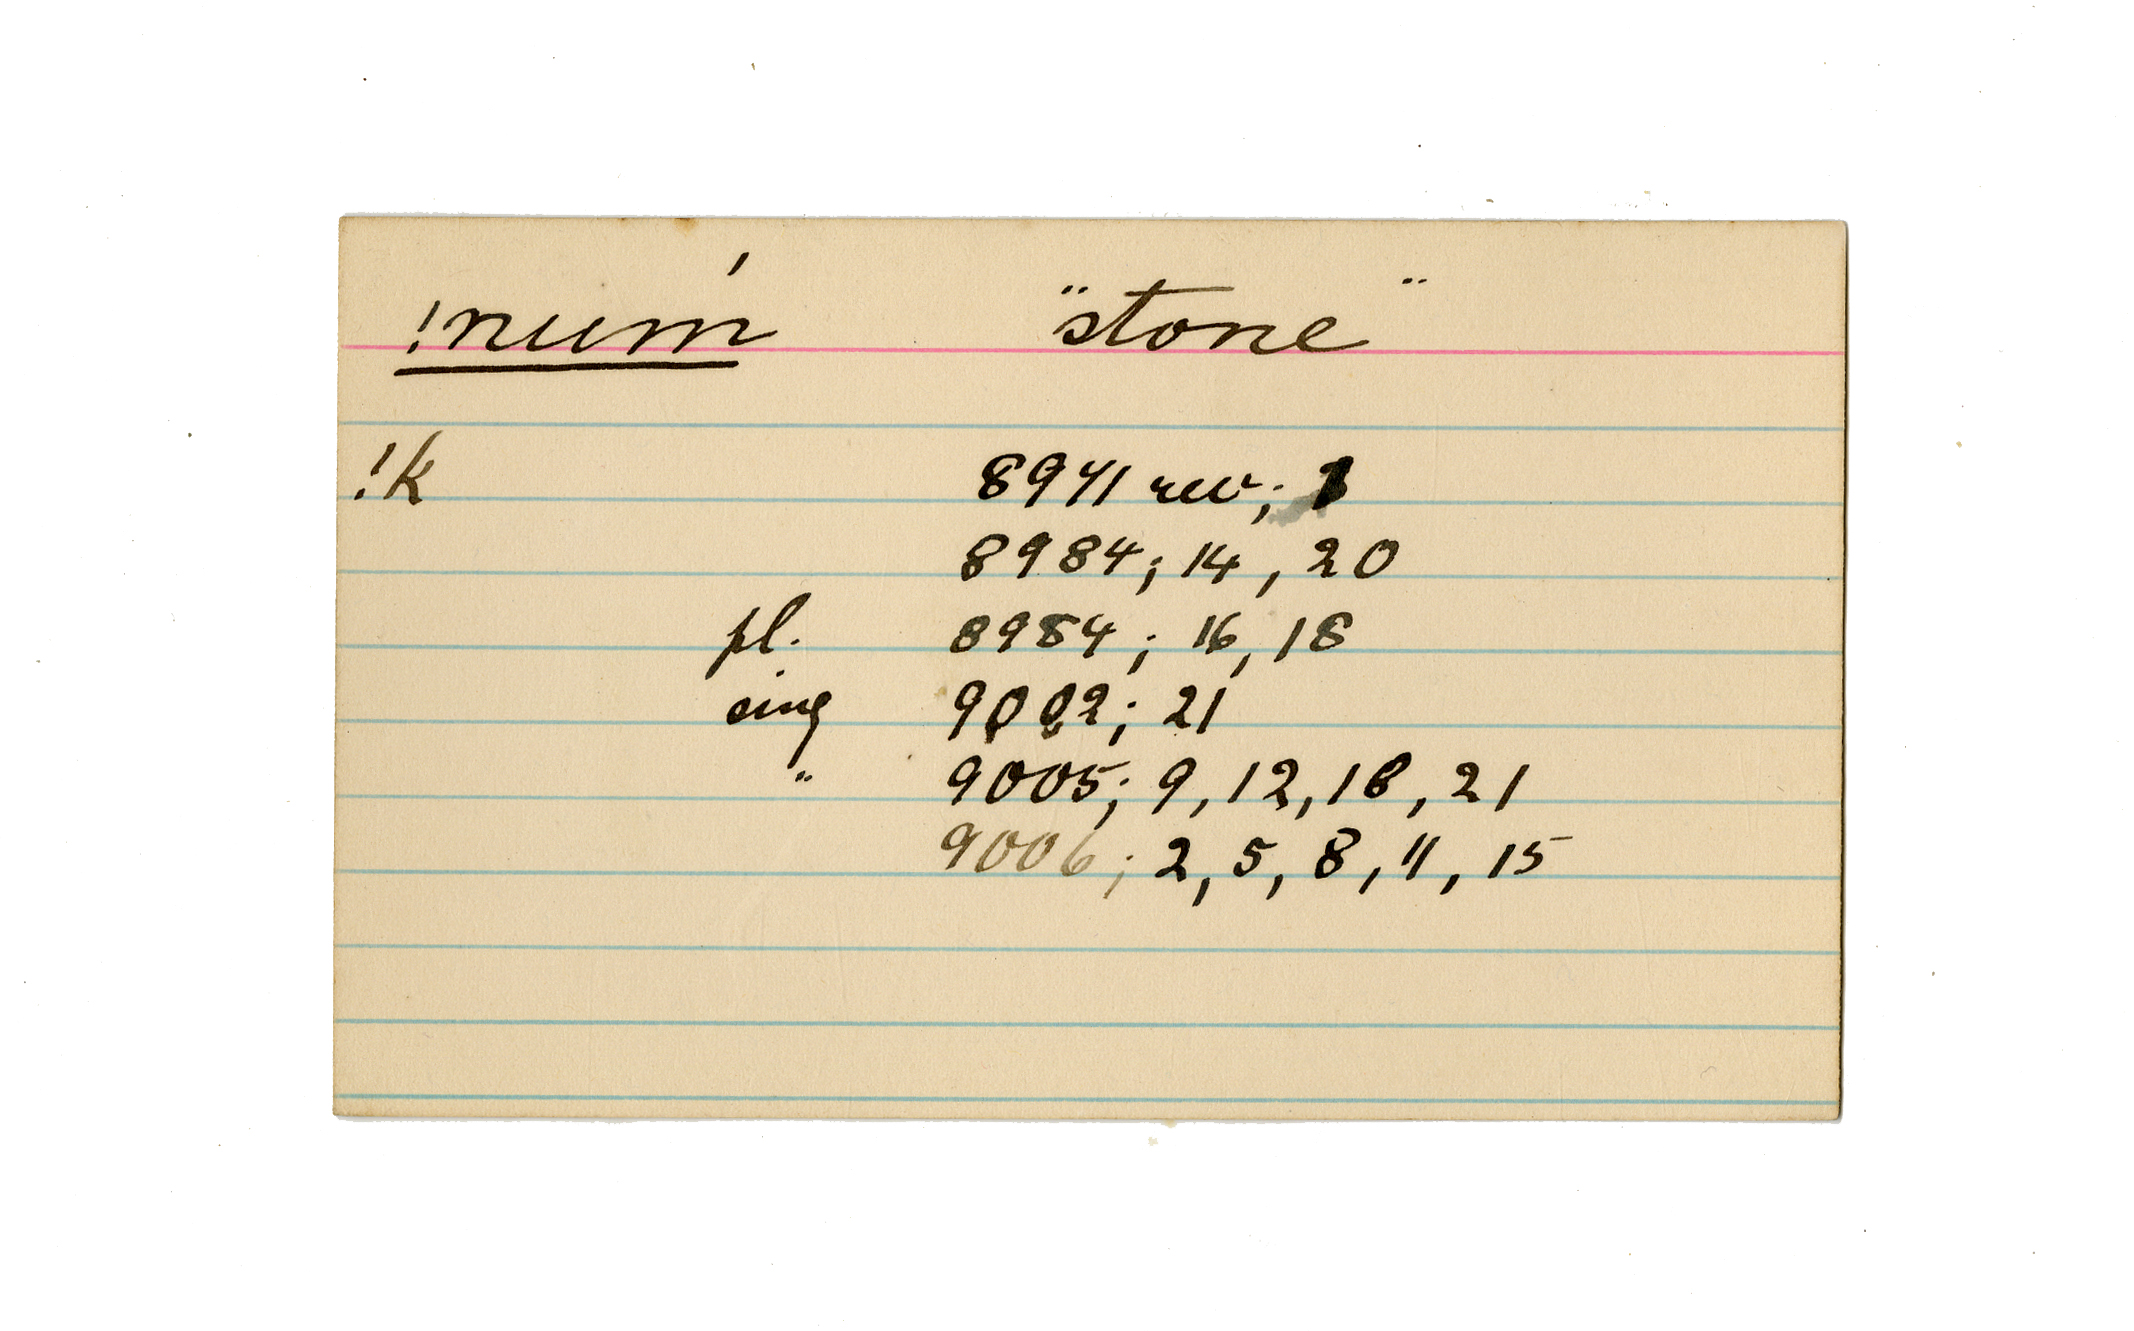 !num´ "stone"
!k 8941 rev;
8984; 14, 20
pl. 8984; 16, 18
sing 9002; 21
" 9005; 9, 12, 18, 21
9006; 2, 5, 8, 11, 15